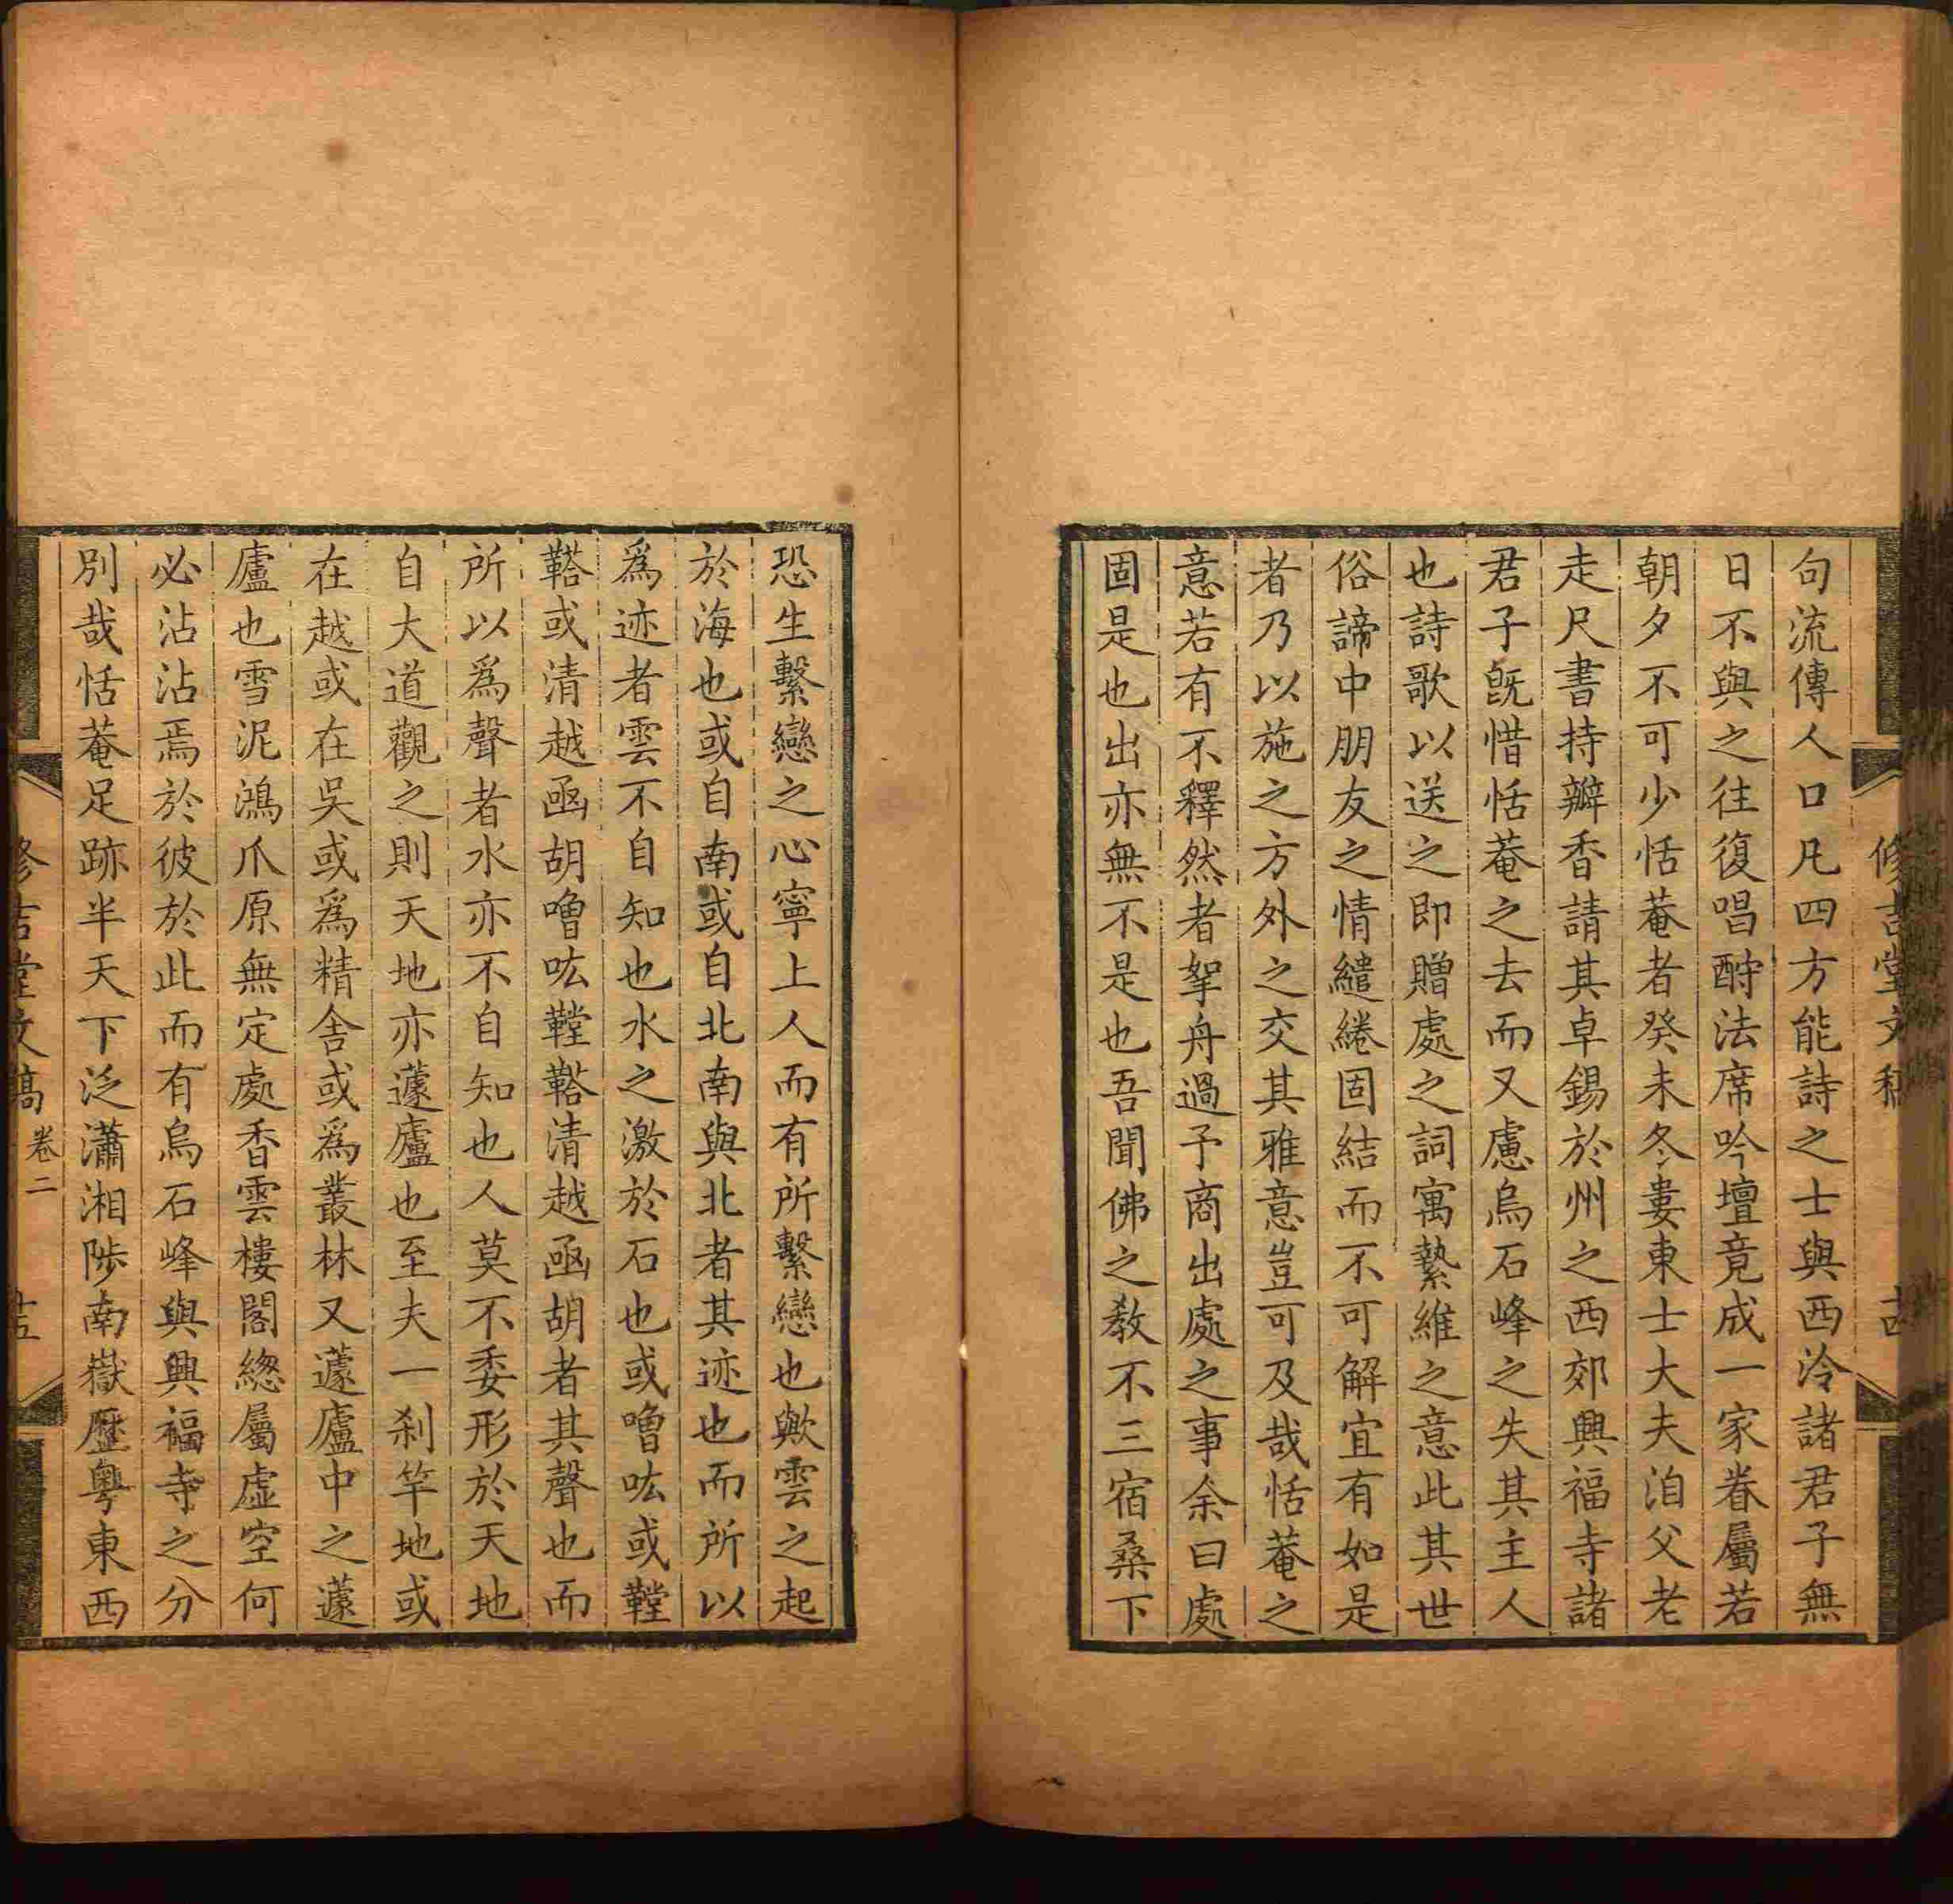 修吉堂文稿
句流傳人口凡四方能詩之士與西泠諸君子無
日不與之往復唱酧法席吟壇竟成一家眷屬若
朝夕不可少恬菴者癸未冬婁東士大夫洎父老
走尺書持瓣香請其卓錫於州之西郊興福寺諸
君子旣惜恬菴之去而又慮烏石峰之失其主人
也詩歌以送之即贈處之詞寓縶維之意此其世
俗諦中朋友之情繾綣固結而不可解宜有如是
者乃以施之方外之交其雅意豈可及哉恬菴之
意若有不釋然者挐舟過予商出處之事余曰處
固是也出亦無不是也吾聞佛之教不三宿桑下
恐生繫戀之心寧上人而有所繫戀也歟雲之起
於海也或自南或自北南與北者其迹也而所以
爲迹者雲不自知也水之激於石也或噌吰或鞺
鞳或清越凾胡噌吰鞺鞳清越凾胡者其聲也而
所以爲聲者水亦不自知也人莫不委形於天地
自大道觀之則天地亦蘧廬也至夫一刹竿地或
在越或在吳或爲精舍或爲叢林又蘧廬中之蘧
廬也雪泥鴻爪原無定處香雲樓閣緫屬虛空何
必沾沾焉於彼於此而有烏石峰與興福寺之分
別哉恬菴足跡半天下泛瀟湘陟南嶽歷粵東西
修吉堂文稿 卷二 十五